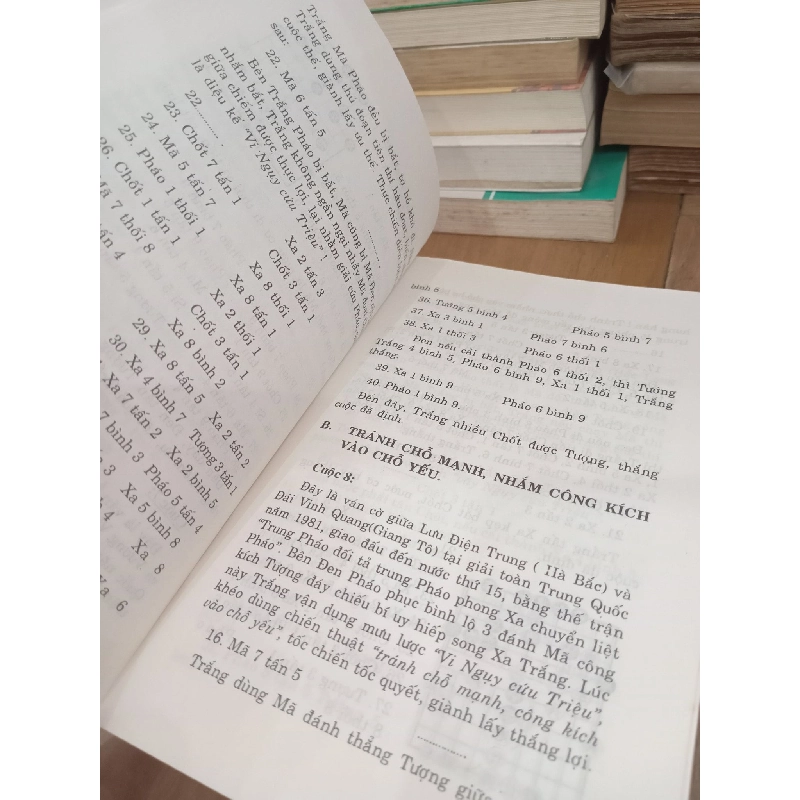 Trắng Mã Pháo đều bị bắt, tơ hồ khó
Trắng dùng thủ đoạn tiên thí hậu đoạt,
cuộc thế, giành lấy ưu thế. Thực chiến
sau:
22. Mã 6 tấn 5 ..........
Bên Trắng Pháo bị bắt, Mã cũng bị Mã Đen
nhằm bắt, Trắng không ngần ngại nhảy Mã
giữa chiếm được thực lợi, lại nhằm giải cứu Pháo,
là diệu kế "Vi Ngụy cứu Triệu" !
22.......... Xa 2 tấn 3
23. Chốt 7 tấn 1 Chốt 3 tấn 1
24. Mã 5 tấn 7 Xa 8 thối 1
25. Pháo 1 thối 1 Xa 8 tấn 1
26. Chốt 1 tấn 1 Xa 2 thối 1
Mã 7 thối 8 Chốt 3 tấn 1
tấn 4 Xa 8 bình 2
29. Xa 8 tấn 5 Xa 2 tấn 2
30. Xa 4 bình 7 Tượng 3 tấn 1
Xa 7 tấn 2 Xa 2 bình 5
7 bình 3 Pháo 5 tấn 4
3 Xa 5 bình 8
4 Xa 8
Xa 6
bình 6
36. Tướng 5 bình 4 Pháo 5 bình 7
37. Xa 3 bình 1 Pháo 7 bình 6
38. Xa 1 thối 3 Pháo 6 thối 1
Đen nếu cải thành Pháo 6 thối 2, thì Tướng
Trắng 4 bình 5, Pháo 6 bình 9, Xa 1 thối 1, Trắng
thắng.
39. Xa 1 bình 9
40. Pháo 1 bình 9. Pháo 6 bình 9
Đến đây, Trắng nhiều Chốt được Tượng, thắng
cuộc đã định
B. TRÁNH CHỖ MẠNH, NHẮM CÔNG KÍCH
VÀO CHỖ YẾU.
Cuộc 8:
Đây là ván cờ giữa Lưu Điện Trung ( Hà Bắc) và
Đái Vinh Quang(Giang Tô) tại giải toàn Trung Quốc
năm 1981, giao đấu đến nước thứ 15, bằng thế trận
"Trung Pháo đối tả trung Pháo phong Xa chuyển liệt
Pháo". Bên Đen Pháo phục bình lộ 3 đánh Mã công
kích Tượng đáy chiếu bí uy hiếp song Xa Trắng. Lúc
này Trắng vận dụng mưu lược "Vi Ngụy cứu Triệu",
khéo dùng chiến thuật "tránh chỗ mạnh, công kích
vào chỗ yếu", tốc chiến tốc quyết, giành lấy thắng lợi.
16. Mã 7 tấn 5 ..............
Trắng dùng Mã đánh thẳng Tượng giữa